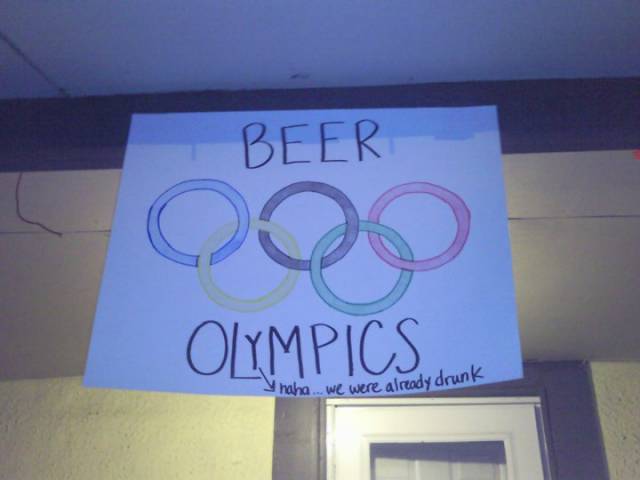 BEER
OLYMPICS
haha... we were already drunk